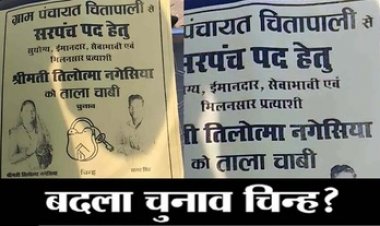 ग्राम पंचायत चितापाली से
सरपंच पद हेतु
सुयोग्य, ईमानदार, सेवाभावी एवं
मिलनसार प्रत्याशी
श्रीमती तिलोत्मा नगेसिया
को ताला चाबी
चुनाव
श्रीमती तिलोत्मा नगेसिया
चिन्ह
ग्राम पंचायत चितापाली से
सरपंच पद हेतु
सुयोग्य, ईमानदार, सेवाभावी एवं
मिलनसार प्रत्याशी
श्रीमती तिलोत्मा नगेसिया
को ताला चाबी
बदला चुनाव चिन्ह?